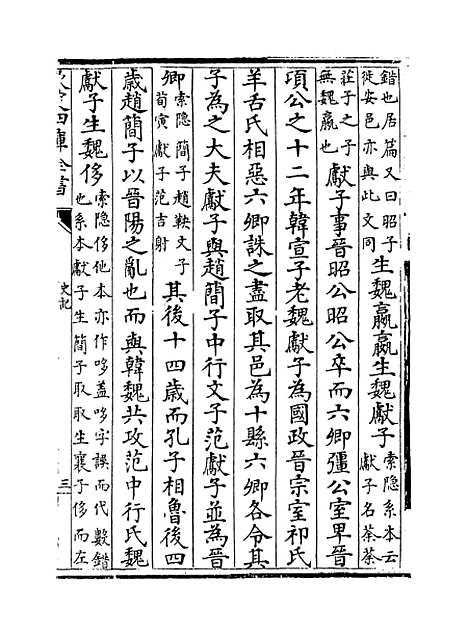 錯也居篇又曰昭子
徙安邑亦與此文同
生魏嬴嬴生魏獻子
索隐系本云
獻子名荼荼
莊子之子
無魏嬴也
獻子事晉昭公昭公卒而六卿彊公室卑晉
項公之十二年韓宣子老魏獻子為國政晉宗室祁氏
羊舌氏相惡六卿誅之盡取其邑為十縣六卿各令其
子為之大夫獻子與趙簡子中行文子范獻子並為晉
卿
索隐簡子趙鞅文子
荀寅獻子范吉射
其後十四歲而孔子相魯後四
歲趙簡子以晉陽之亂也而與韓魏共攻范中行氏魏
獻子生魏侈
索隐侈他本亦作哆盖哆字誤而代數錯
也系本獻子生簡子取取生襄子侈而左
四庫全書
史記
三